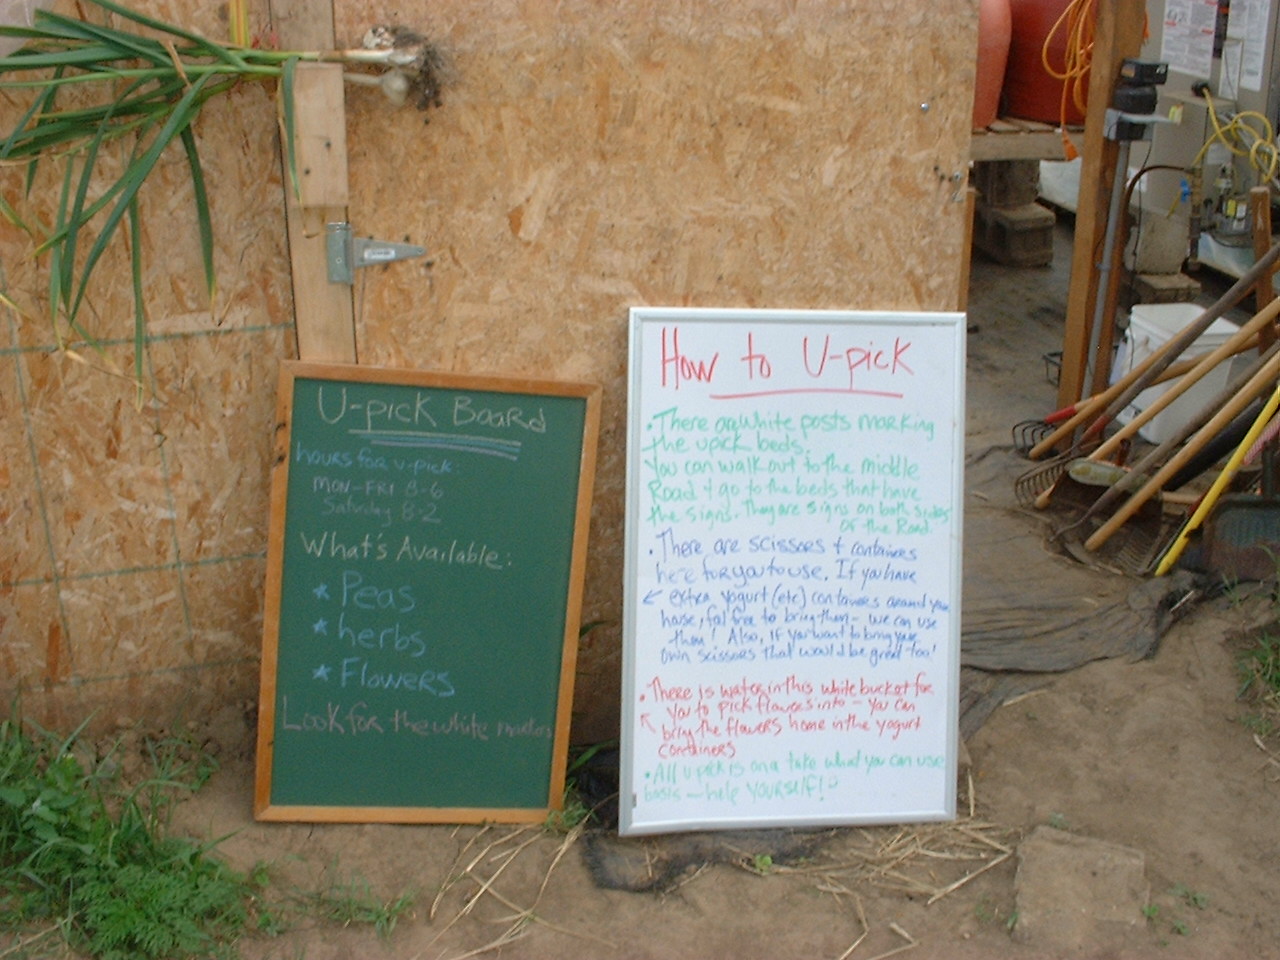 U-Pick Board
hours for u-pick:
Mon-Fri 8-6
Saturday 8-2
What's Available:
* Peas
* herbs
* Flowers
Look for the white markers
How to U-pick
• There are white posts marking
the upick beds.
You can walk out to the middle
Road + go to the beds that have
the signs. They are signs on both sides
of the Road.
• There are scissors + containers
here for you to use. If you have
← extra yogurt (etc) containers around your
house, feel free to bring them - we can use
them! Also, if you want to bring your
own scissors that would be great too!
• There is water in this white bucket for
you to pick flowers into - you can
bring the flowers home in the yogurt
containers
• All u pick is on a take what you can use
basis - help yourself!